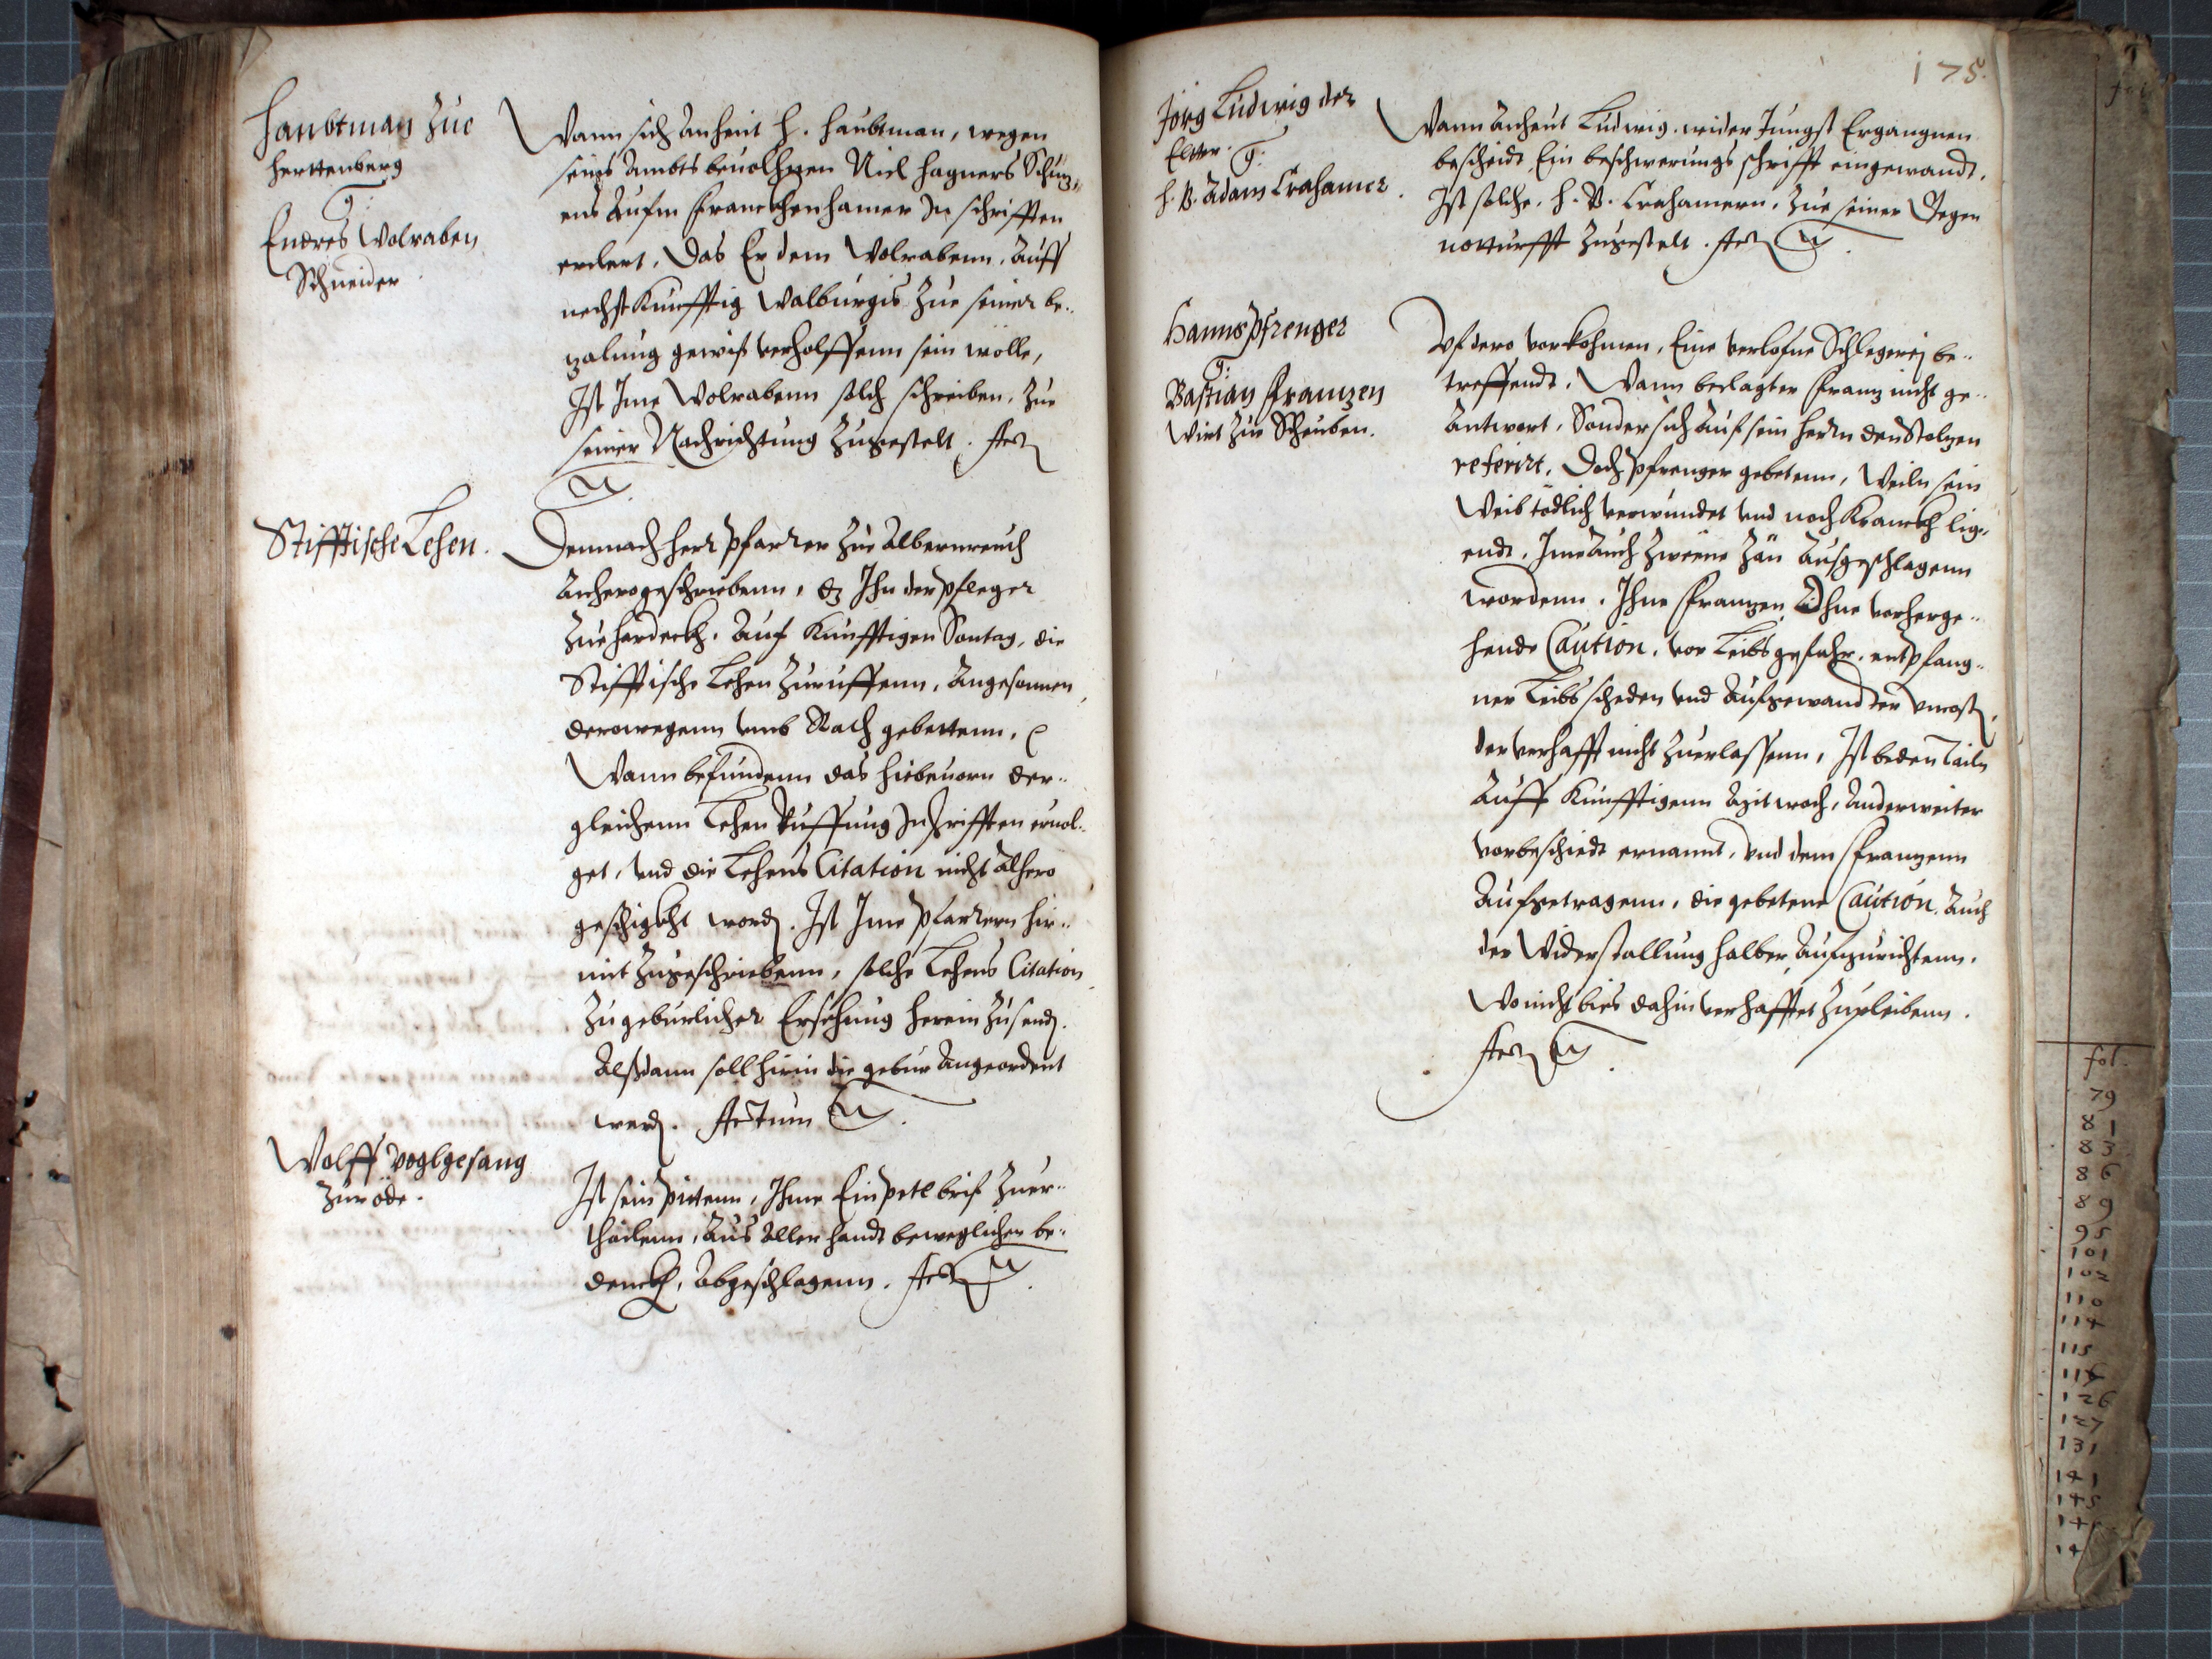 Haubtman Zue
Herttenberg
g:
Endres Wolraben
Schneider.
Wann sich Anheut H. Haubtman, wegen
seins Ambts beuolhnen Nicl Hagners Schuz„
ens Aufm Franckhenhamer In schrifften
erclert, Das Er dem Wolrabenn, Auff
nechst Kunfftig Walburgis Zue seiner be„
zalung gewiß verholffenn sein wölle,
Ist Ime Wolrabenn solch schreiben, Zue
seiner Nachrichtung Zugestelt. Act
Stifftische Lehen.
Demnach Herr Pfarrer Zue Albernreuth
Anhero geschriebenn, dz Ihn der Pfleger
Zue Hardeckh, Auf Kunfftigen Sontag, die
Stifftische Lehen Zuruffenn, Angesonnen,
derowegenn vmb Rath gebettenn,
Wann befundenn das hiebeuorn der„
gleichenn Lehen Ruffung In schrifften eruol„
get, vnd die Lehens Citation nicht alhero
geschigkht word. Ist Ime Pfarrern hie„
mit Zugeschriebenn, solche Lehens Citation
Zu geburlicher Ersehung herein Zusend.
Alßdann soll hirin die gebur Angeordent
werd. Actum
Wolff Voglgesang
Zur öde.
Ist sein Pittenn, Ihme Ein Petl brif Zuer„
thailenn, Aus Aller handt beweglichen be„
denckh, Abgeschlagenn. Act
175.
Jörg Ludwig der
Elter.
g:
H. B. Adam Crahamer.
Wann Anheut Ludwig. wider Jungst Ergangnen
bescheidt Ein beschwerungs schrifft eingewandt,
Ist solche, H. B. Crahamern, Zue seiner Gegen
notturfft Zugestelt. Act
Hanns Pfrenger
g:
Bastian Franzen
Wirt Zue Scheuben.
Vf dero vorkohmen, Eine verlofne Schlegerej be„
treffendt, Wann beclagter Franz nicht ge„
Antwort, Sonder sich Auf sein Herrn den Stolzen
referirt, Doch Pfrenger gebetenn, Weiln sein
Weib tödlich verwundet vnd noch Kranckh lig„
endt, Ime Auch Zweene Zän Ausgeschlagenn
wordenn, Ihne Franzen Ohne vorherge„
hende Caution, vor Leibs gefahr, entpfang„
ner Leibs scheden vnd Aufgewandter vncost,
der verhafft nicht Zuerlassenn, Ist beden Tailn
Auff Kunfftigenn Mitwoch, Anderweiter
vorbeschiedt ernannt, vnd dem Franzenn
Aufgetragenn, die gebetene Caution Auch
der Widerstallung halber Aufzurichtenn,
Wo nicht bies dahin verhafftet Zupleibenn.
Act
fol.
79
81
83
86
89
95
101
102
110
114
115
116
126
127
131
141
145